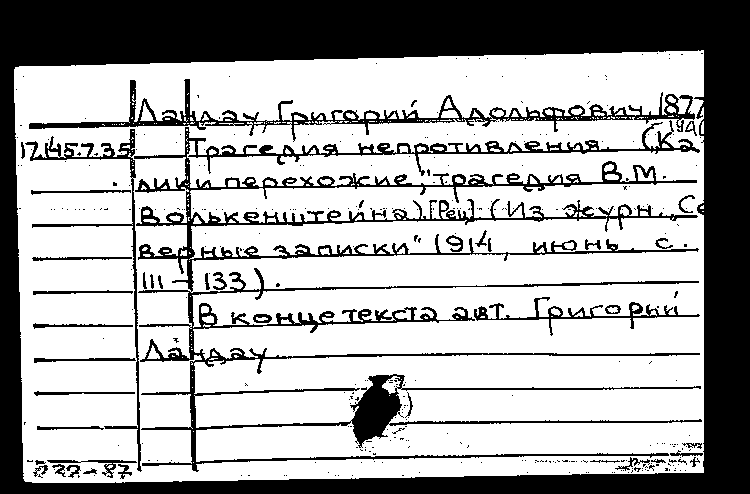 Ландау, Григорий Адольфович, 1877
17.145.7.35 Трагедия непротивления. („Ка
лики перехожие", трагедия В.М.
Волькенштейна) [Рец]. (Из журн. „Се
верные записки" 1914, июнь. с.
111 - 133).
В конце текста авт. Григорий
Ландау
222-87